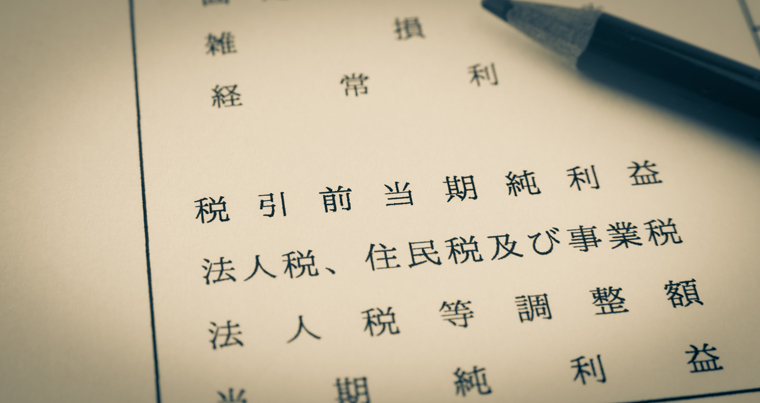 雑 損
経 常 利
税 引 前 当 期 純 利 益
法人税、住民税及び事業税
法 人 税 等 調 整 額
当 期 純 利 益